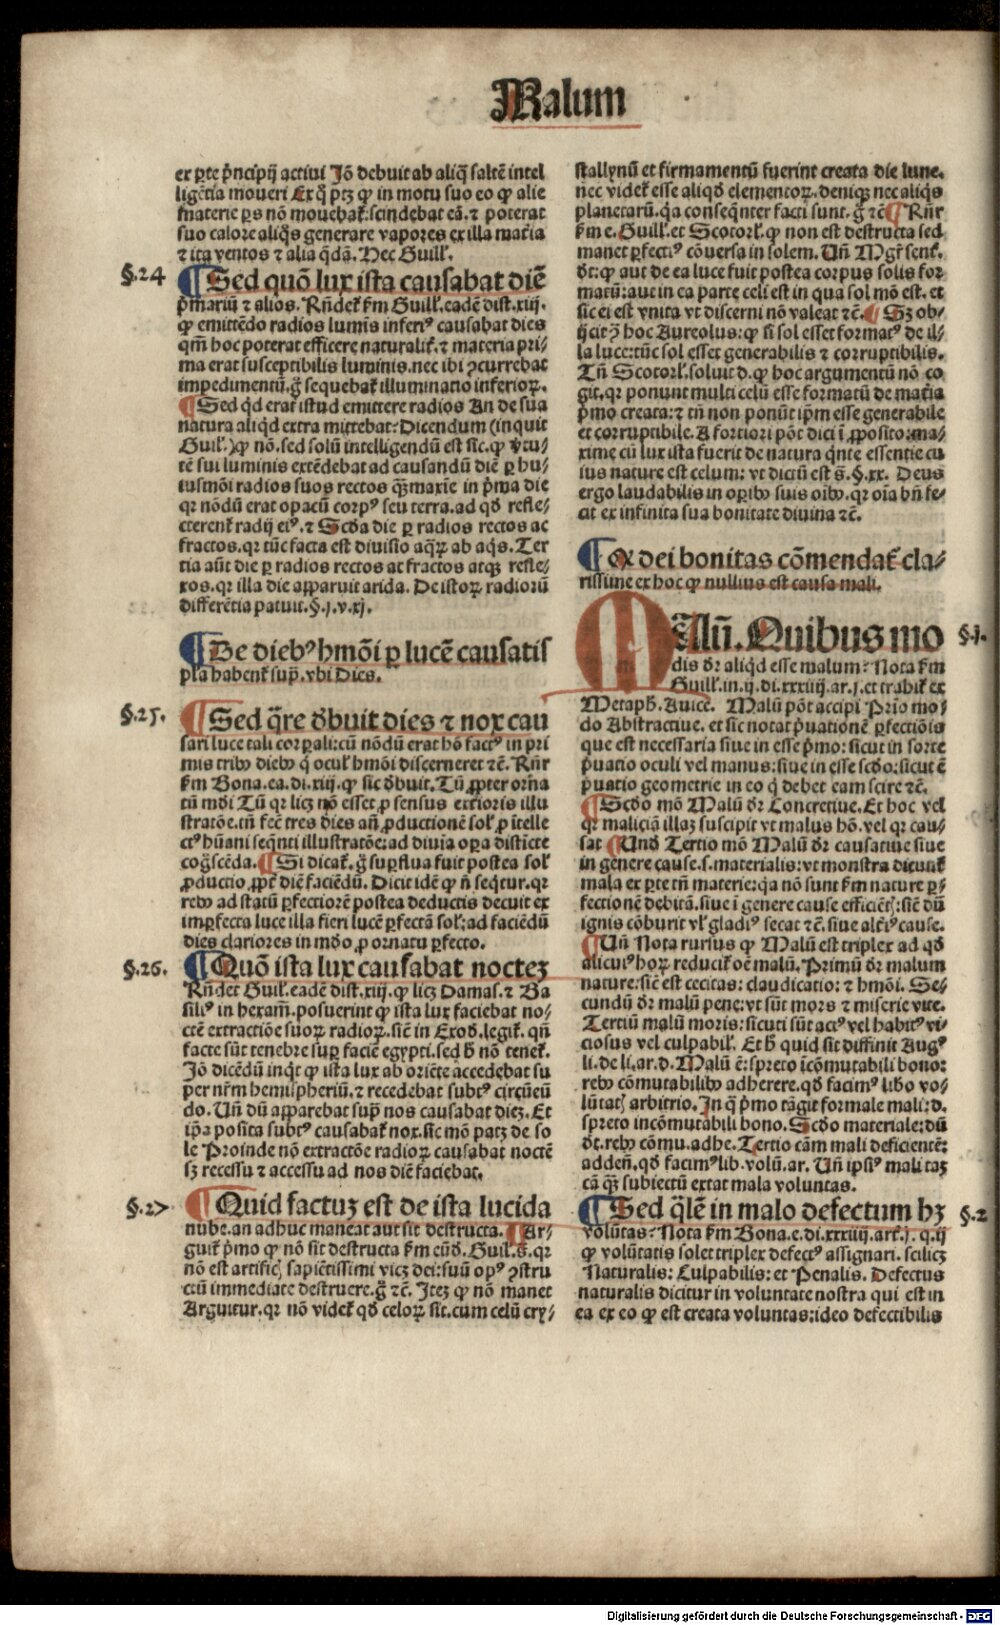 Malum
ex ꝑte pͥncipij actiui Jō debuit ab aliq̄ saltē intel
ligētia moueri Ex q̊ ptꝫ ꝙ in motu suo eo ꝙ alie
materie ꝑs nō mouebat᷑: scindebat eā. ⁊ poterat
suo calore aliq̄s generare vapores ex illa mat̄ia
⁊ ita ventos ⁊ alia q̄dā. Hec Guill̕.
§.24
¶ Sed quō lux ista causabat diē
pͥmariū ⁊ alios. Rn̄det ẜm Guill̕. eadē dist. xiij.
ꝙ emittēdo radios lumīs inferiꝰ causabat dies
qm̄ hoc poterat efficere naturalit̕. ⁊ materia pri/
ma erat susceptibilis luminis. nec ibi ꝯcurrebat
impedimentū. g̊ sequebat᷑ illuminatio inferioꝝ.
¶ Sed qͥd erat istud emittere radios An de sua
natura aliqͥd extra mittebat: Dicendum (inquit
Guil̕.) ꝙ nō. sed solū intelligendū est sic. ꝙ v̕tu/
tē sui luminis extēdebat ad causandū diē ꝑ hu/
iusmōi radios suos rectos q̄ꝫ maxīe in pͥma die
qꝛ nōdū erat opacū corpꝰ seu terra. ad qd̕ refle/
cterent᷑ radij eiꝰ. ⁊ Scd̕a die ꝑ radios rectos ac
fractos. qꝛ tūc facta est diuisio aq̄ꝝ ab aq̄s. Ter
tia aūt die ꝑ radios rectos ac fractos atqꝫ refle/
xos. qꝛ illa die apparuit arida. De istoꝝ radiorū
differētia patuit. §. j. v. xj.
¶ De diebꝰ hmōi ꝑ lucē causatis
pl̕a habent᷑ supͣ. vbi Dies.
§.25.
¶ Sed q̄re d̕buit dies ⁊ nox cau
sari luce tali corꝑali: cū nōdū erat hō factꝰ in pri
mis tribꝰ diebꝰ q̇ ocul̕ hmōi discerneret ⁊c̄. Rn̄r
ẜm Bona. ea. di. xiij. ꝙ sic d̕buit. Tū ꝓpter orna
tū mūdi Tū qꝛ licꝫ nō esset ꝓ sensus exterioris illu
stratōe. tn̄ fec̄ tres dies an̄ ꝓductionē sol̕ ꝓ ītelle
ctꝰ hūani seq̄nti illustratōe: ad diuia oꝑa distīcte
cog̊scēda. ¶ Si dicat᷑. g̊ suꝑflua fuit postea sol̕
ꝓductio ꝓpt̕ diē faciēdū. Dicit idē ꝙ n̄ seq̄tur. qꝛ
rebꝰ ad statū ꝑfectiorē postea deductis decuit ex
imꝑfecta luce illa fieri lucē ꝑfectā sol̕: ad faciēdū
dies clariores in mūdo ꝓ ornatu ꝑfecto.
§.26.
¶ Quō ista lux causabat noctēꝫ
Rn̄det Guil̕. eadē dist. xiij. ꝙ licꝫ Damas. ⁊ Ba
silꝰ in hexam̄. posuerint ꝙ ista lux faciebat no/
ctē extractiōe suoꝝ radioꝝ. sic̄ in Exod̕. legit᷑. qn̄
facte sūt tenebre suꝑ faciē egypti. sed h̕ nō tenet᷑.
Jō dicēdū inqͥt ꝙ ista lux ab oriēte accedebat su
per nr̄m hemispheriū. ⁊ recedebat subtꝰ circūeū
do. Un̄ dū apparebat supͣ nos causabat diēꝫ. Et
ip̄a posita subtꝰ causabat᷑ nox. sic mō patꝫ de so
le Proinde nō extractōe radioꝝ causabat noctē
sꝫ recessu ⁊ accessu ad nos diē faciebat.
§.27
¶ Quid factuꝫ est de ista lucida
nube. an adhuc maneat aut sit destructa. ¶ Ar/
guit᷑ pͥmo ꝙ nō sit destructa ẜm eūd̕. Guil̕. s̄. qꝛ
nō est artificꝭ sapiētissimi vicꝫ dei: suū opꝰ ꝯstru
ctū immediate destruere. g̊ ⁊c̄. Iteꝫ ꝙ nō manet
Arguitur. qꝛ nō videt᷑ qd̕ celoꝝ sit. cum celū cry/
stallynū et firmamentū fuerint creata die lune.
nec videt᷑ esse aliqd̕ elementoꝝ. deniqꝫ nec aliq̇s
planetarū. qͥa conseq̄nter facti sunt. g̊ ⁊c̄ ¶ Rn̄r
ẜm e. Guill̕. et Scotorl̕. ꝙ non est destructa sed
manet ꝑfectiꝰ cōuersa in solem. Un̄ Mgr̄ sent̕.
d̕t: ꝙ aut de ea luce fuit postea corpus solis for
matū: aut in ea parte celi est in qua sol mō est. et
sic ei est vnita vt discerni nō valeat ⁊c̄. ¶ Sꝫ ob/
ijcit ꝯ hoc Aureolus: ꝙ si sol esset formatꝰ de il/
la luce: tūc sol esset generabilis ⁊ corruptibilis.
Tn̄ Scotorl̕. soluit d. ꝙ hoc argumentū nō co
git. qꝛ ponunt multi celū esse formatū de mat̄ia
pͥmo creata: ⁊ tn̄ non ponūt ip̄m esse generabile
et corruptibile. A fortiori pōt dici ī ꝓposito: ma/
xime cū lux ista fuerit de natura qͥnte essentie cu
ius nature est celum: vt dictū est s̄. §. xx. Deus
ergo laudabilis in oꝑibꝰ suis oībꝰ. qꝛ oīa bn̄ fe/
cit ex infinita sua bonitate diuina ⁊c̄.
¶ Ex dei bonitas cōmendat᷑ cla/
rissime ex hoc ꝙ nullius est causa mali.
Malū. Quibus mo
§.j.
dis d̕r aliqͥd esse malum: Nota ẜm
Guill̕. in. ij. di. xxxiiij. ar. j. et trahit᷑ ex
Metaph̕. Auicē. Malū pōt accipi Prio mo/
do Abstractiue. et sic notat pͥuationē ꝑfectiōis
que est necessaria siue in esse pͥmo: sicut in sorte
pͥuatio oculi vel manus: siue in esse scd̕o: sicut ē
pͥuatio geometrie in eo q̇ debet eam scire ⁊c̄.
¶ Scd̕o mō Malū d̕r Concretiue. Et hoc vel
qꝛ maliciā illaꝫ suscipit vt malus hō. vel qꝛ cau/
sat ¶ Und̕ Tertio mō Malū d̕r causatiue siue
in genere cause. s. materialis: vt monstra dicunt᷑
mala ex ꝑte tn̄ materie: qͥa nō sunt ẜm nature ꝑ/
fectionē debitā. siue ī genere cause efficiētꝭ: sic̄ dū
ignis cōburit vl̕ gladiꝰ secat ⁊c̄. siue alt̕iꝰ cause.
¶ Un̄ Nota rursus ꝙ Malū est triplex ad qd̕
alicuiꝰ hoꝝ reducit᷑ oē malū. Primū d̕r malum
nature: sic̄ est cecitas: claudicatio: ⁊ hmōi. Se/
cundū d̕r malū pene: vt sūt mors ⁊ miserie vite.
Tertiū malū moris: sicuti sūt actꝰ vel habitꝰ vi/
ciosus vel culpabil̕. Et h̕ quid sit diffinit Augꝰ
li. de li. ar. d. Malū ē: spreto īcōmutabili bono:
rebꝰ cōmutabilibꝰ adherere. qd̕ facimꝰ lib̕o vo/
lūtatꝭ arbitrio. In q̊ pͥmo tāgit formale mali: d.
spreto incōmutabili bono. Scd̕o materiale: dū
d̕t. rebꝰ cōmu. adhe. Tertio cām mali deficientē:
adden̄. qd̕ facimꝰ lib. volū. ar. Un̄ ipsiꝰ mali taꝫ
cā qͣꝫ subiectū extat mala voluntas.
¶ Sed q̄lē in malo defectum hꝫ
§.2
volūtas: Nota ẜm Bona. e. di. xxxiiij. art̕. j. q. ij
ꝙ volūtatis solet triplex defectꝰ assignari. scilicꝫ
Naturalis: Culpabilis: et Penalis. Defectus
naturalis dicitur in voluntate nostra qui est in
ea ex eo ꝙ est creata voluntas: ideo defectibilis
Digitalisierung gefördert durch die Deutsche Forschungsgemeinschaft - DFG